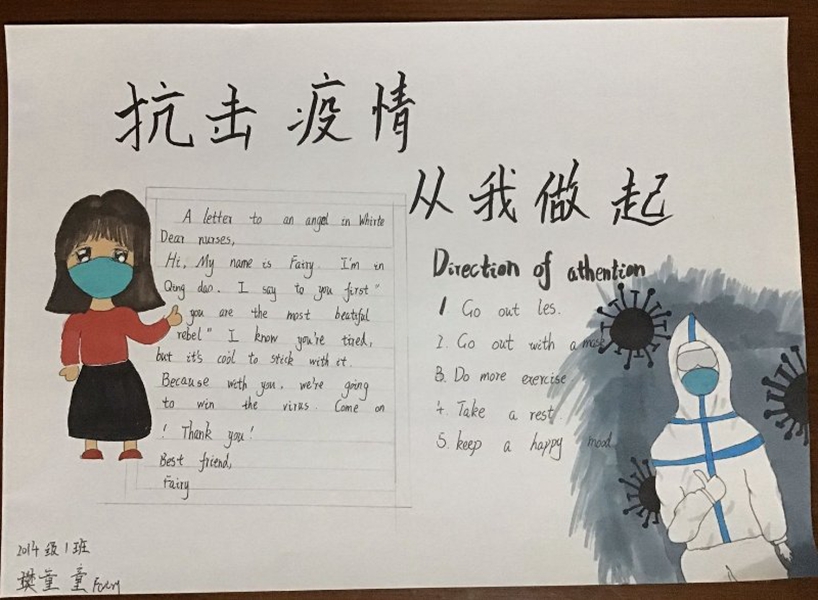 抗击疫情
从我做起
A letter to an angel in Whirte
Dear nurses,
Hi, My name is Fairy. I'm in
Qing dao. I say to you first "
you are the most beatiful
rebel" I know you're tired,
but it's cool to stick with it.
Because with you, we're going
to win the virus. Come on
! Thank you!
Best friend,
Fairy
Direction of athention
1 Go out les.
2. Go out with a mask
3. Do more exercise
4. Take a rest.
5. keep a happy mood
2014级1班
樊童童 Fairy